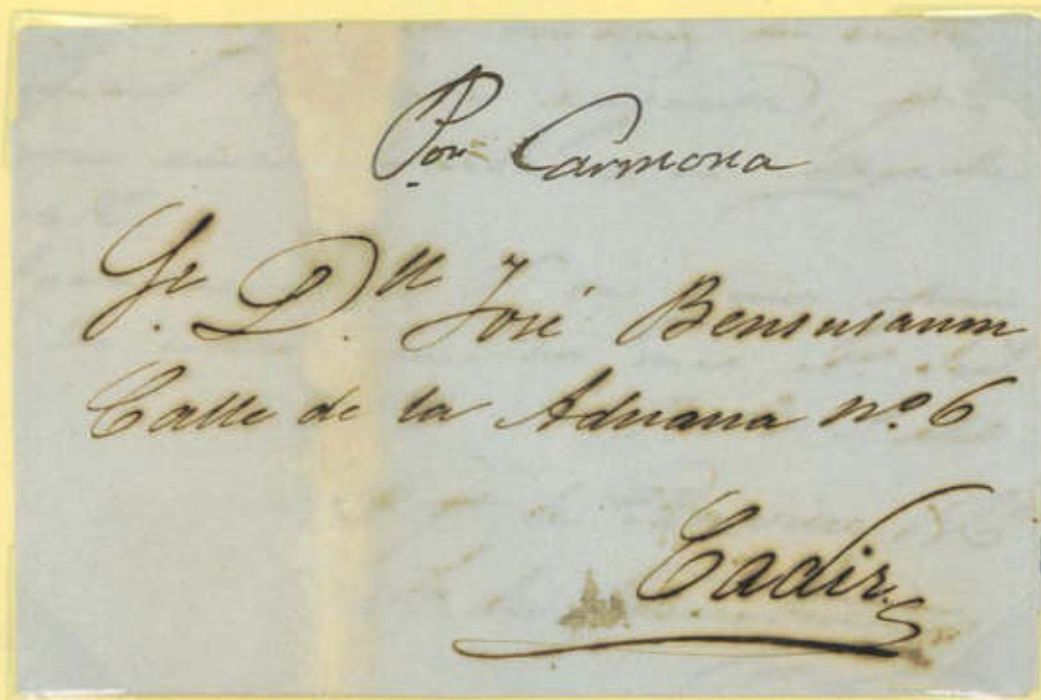 Por Carmona
Sr. D.n José Bensusan
Calle de la Aduana nº 6
Cadiz